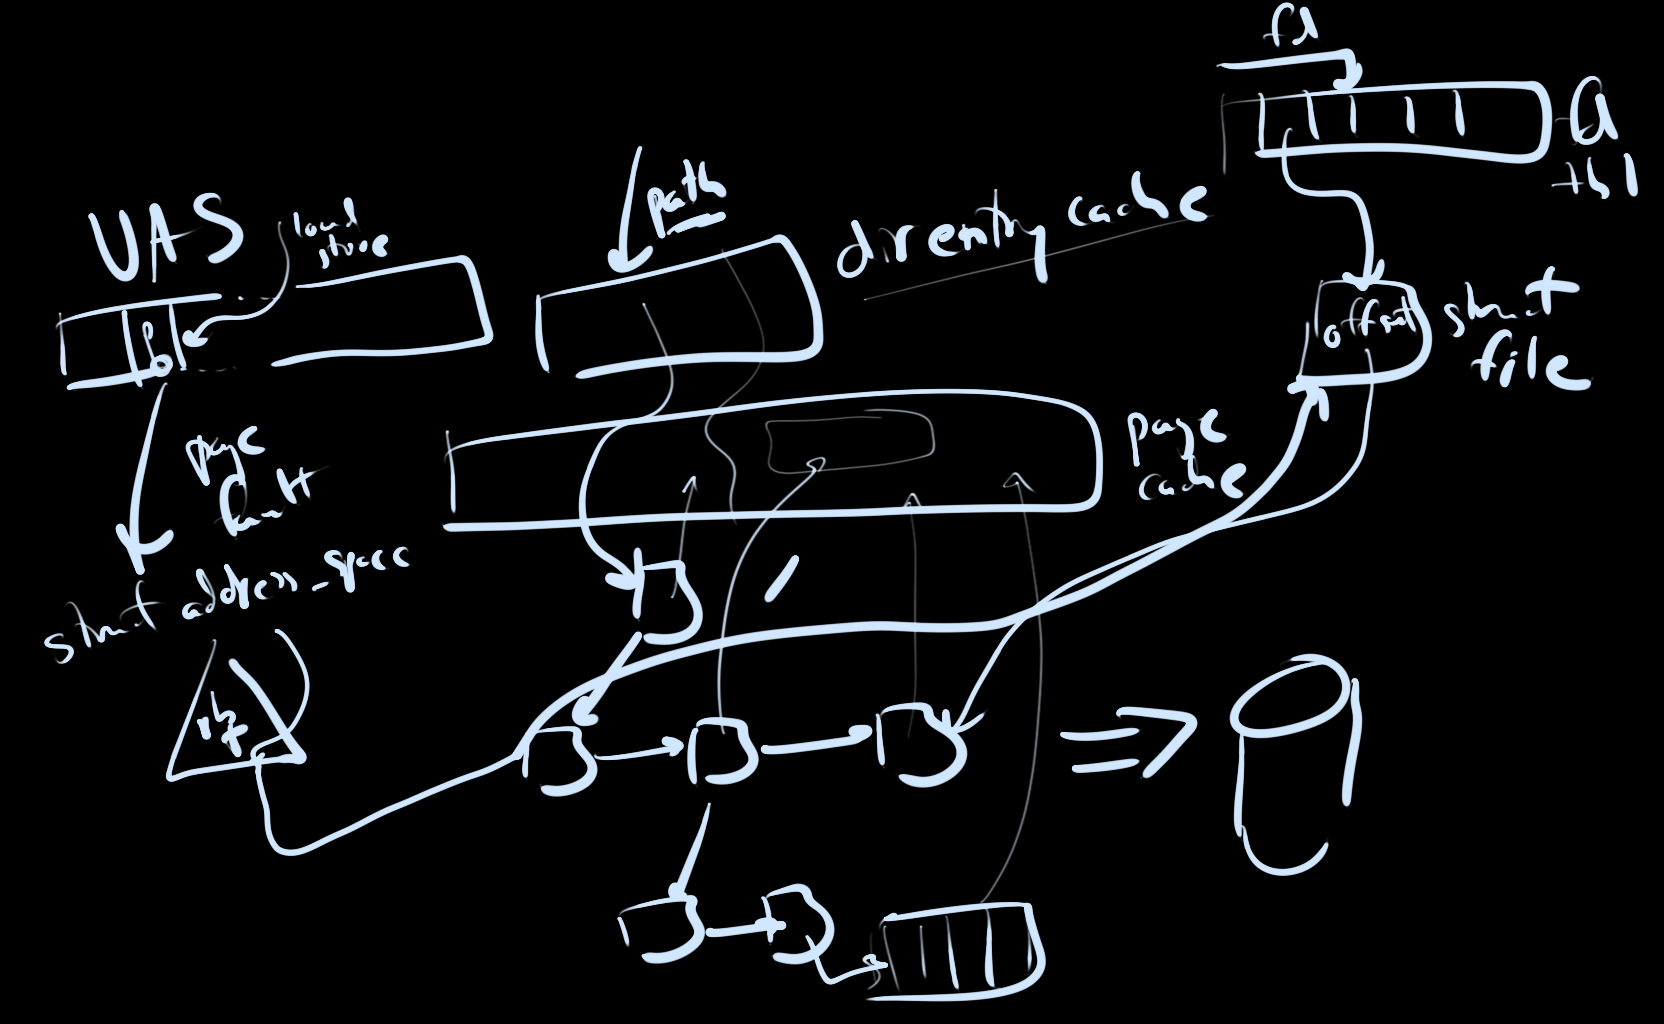 fd
VAS
load
store
path
direntry cache
tbl
offset
struct
file
page
cache
page
fault
struct address_space